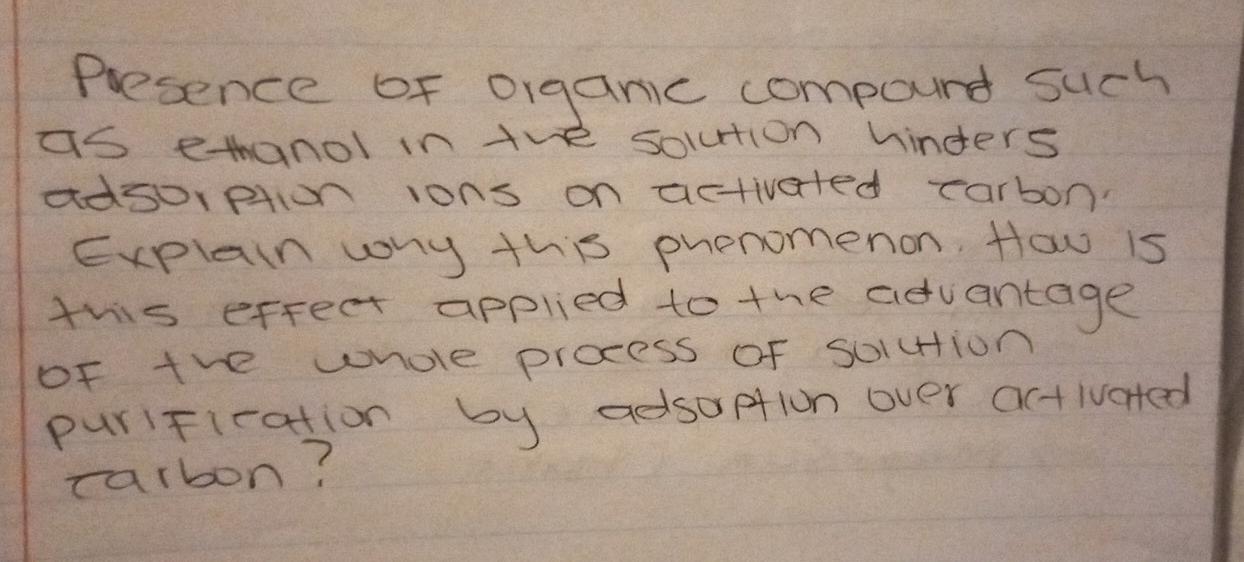 Presence of organic compound such
as ethanol in the solution hinders
adsorption ions on activated carbon.
Explain why this phenomenon. How is
this effect applied to the advantage
of the whole process of solution
purification by adsorption over activated
carbon?